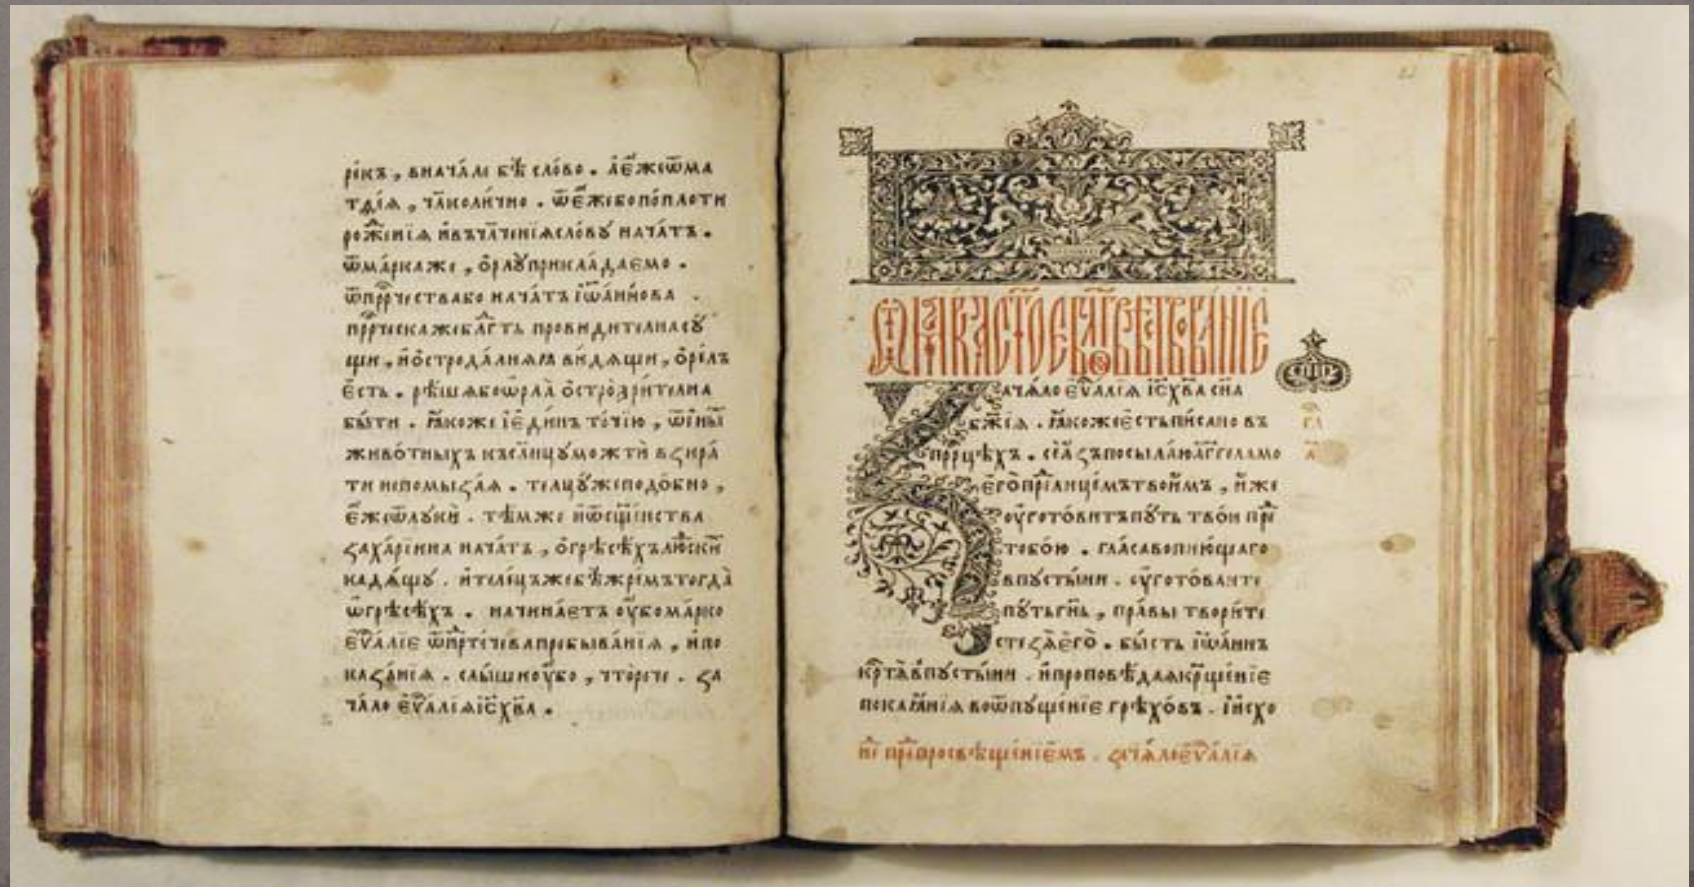 ре́къ, внача́ле бѣ сло́во. а҆е҆́жеѿма
тѳі́а, чл҃коли́чно. ѿе҆́жебопо́плоти
рож́енїѧ и҆въчл҃ченїѧсло́вꙋ нача́тъ.
ѿма́ркаже, ѻ҆рлꙋ̀прикла́даемо.
ѿпрⷪ҇ро́чествабо нача́тъ і҆ѡа́ннова
прⷪ҇ро́ческажебл҃гть прови́дителнасꙋ́
щи, и҆ѻ҆строда́лняꙗ ви́дѧщи, ѻ҆ре́лъ
е҆́сть. рѣ́шѧбоѡ҆рла̀ ѻ҆строзри́телна
бы́ти. ꙗ҆́коже і҆е҆ди́нъ то́чїю, ѿи҆ны́
живо́тныхъ късл҃нцꙋмо́жти̇̀ взира́
ти непомыза́ѧ. телцꙋ́жеподо́бно,
е҆́жеѿлꙋкѝ. тѣ́мже и҆ѿсщ҃е́нства
заха́рїина нача́тъ, ѻ҆грѣсѣ́хълю́скѝ
кадѧ́щꙋ. и҆теле́цъжебѣ̀жре́мътогда̀
ѡ҆грѣсѣ́хъ. начина́етъ ѹ҆́бома́рко
е҆ѵⷢ҇а́лїе ѿпрⷣте́чевапребыва́нїѧ, и҆по
каза́нїѧ. слы́шиѹ҆́бо, что̀рече. за
ча́ло е҆ѵⷢ҇а́лїѧі҆с҃хв҃а.
Ѿма́рка ст҃о́е бл҃говѣствова́нїе
Зача́ло е҆ѵⷢ҇а́лїѧ і҆с҃хв҃а сн҃а
бж҃їѧ. ꙗ҆́кожее҆́стьпи́сано въ
прⷪ҇рцѣхъ. се́а҆зъпосыла́юа҆́гг҃ела мо
е҆го̀ прⷣелице́мътвои́мъ, и҆́же
ѹ҆гото́витъпꙋ́ть тво́и прⷣе
тобо́ю. гла́съвопию́щаго
впꙋсты́ни. ѹ҆гото́ваите
пꙋ́тьгн҃ь, пра́вы твори́те
стезѧ̀е҆го̀. бы́сть і҆ѡа́ннъ
крⷭ҇тѧ̀впꙋсты́ни. и҆проповѣ́даѧкрⷭ҇ще́нїе
покаꙗ́нїѧ воѿпꙋще́нїе грѣхо́въ. и҆и҆схо
прⷣепросвѣще́нїемъ. зача́лое҆ѵⷢ҇а́лїѧ